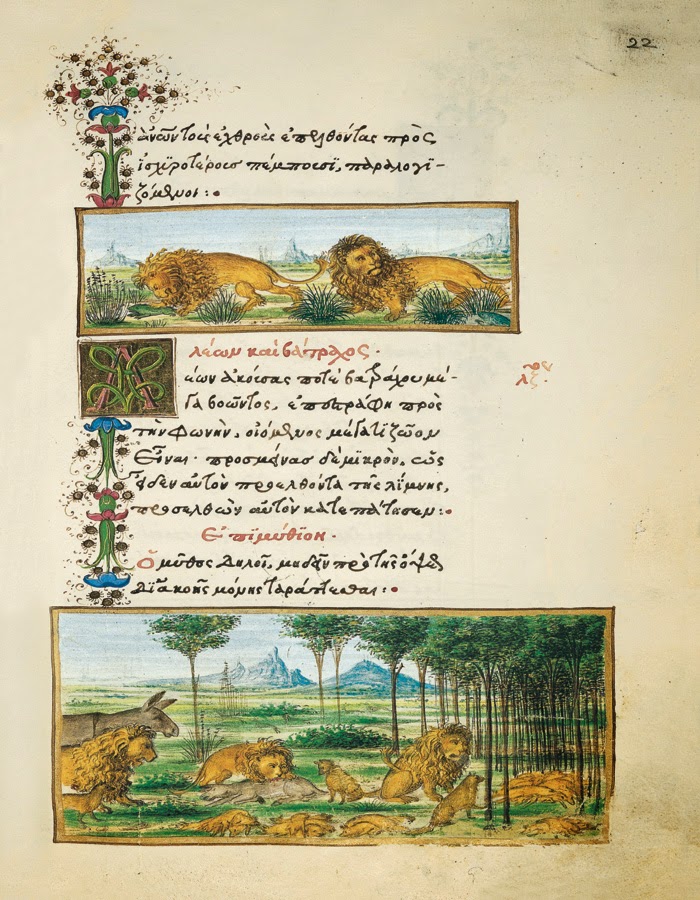 22
ἀνῶν τοὺς ἐχθροὺς ἐπελθόντας πρὸς
ἰσχυροτέρους πέμπουσϊ, παραλογϊ-
ζόμενοι:•
λέων καὶ βάτραχος·
Λέων ἀκούσας ποτὲ βατράχου μέ-
γα βοῶντος, ἐπεστράφη πρὸς
τὴν φωνὴν, οἰόμενος μέγα τϊ ζῶον
εἶναι· προσμείνας δὲ μικρὸν, ὡς
εἶδεν αὐτὸν προελθόντα τῆς λίμνης,
προσελθὼν αὐτὸν κατεπάτησεν:•
Ἐπϊμύθϊον·
Ὁ μῦθος δηλοῖ, μηδὲν πρὸ τῆς ὄψεως
δϊ ἀκοῆς μόνης ταράττεσθαι:•
λζ·